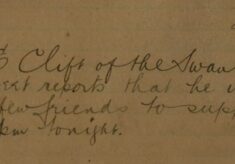 Clift of the Swan
reports that he
few friends to
tonight.